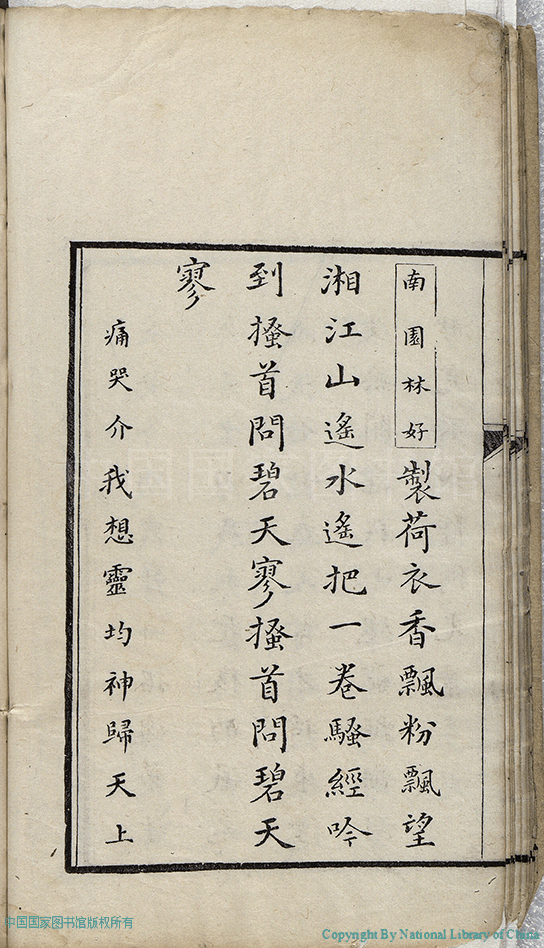 南園林好製荷衣香飄粉飄望
湘江山遙水遙把一卷騷經吟
到搔首問碧天寥搔首問碧天
寥
痛哭介我想靈均神歸天上
中国国家图书馆版权所有
Copyright By National Library of China